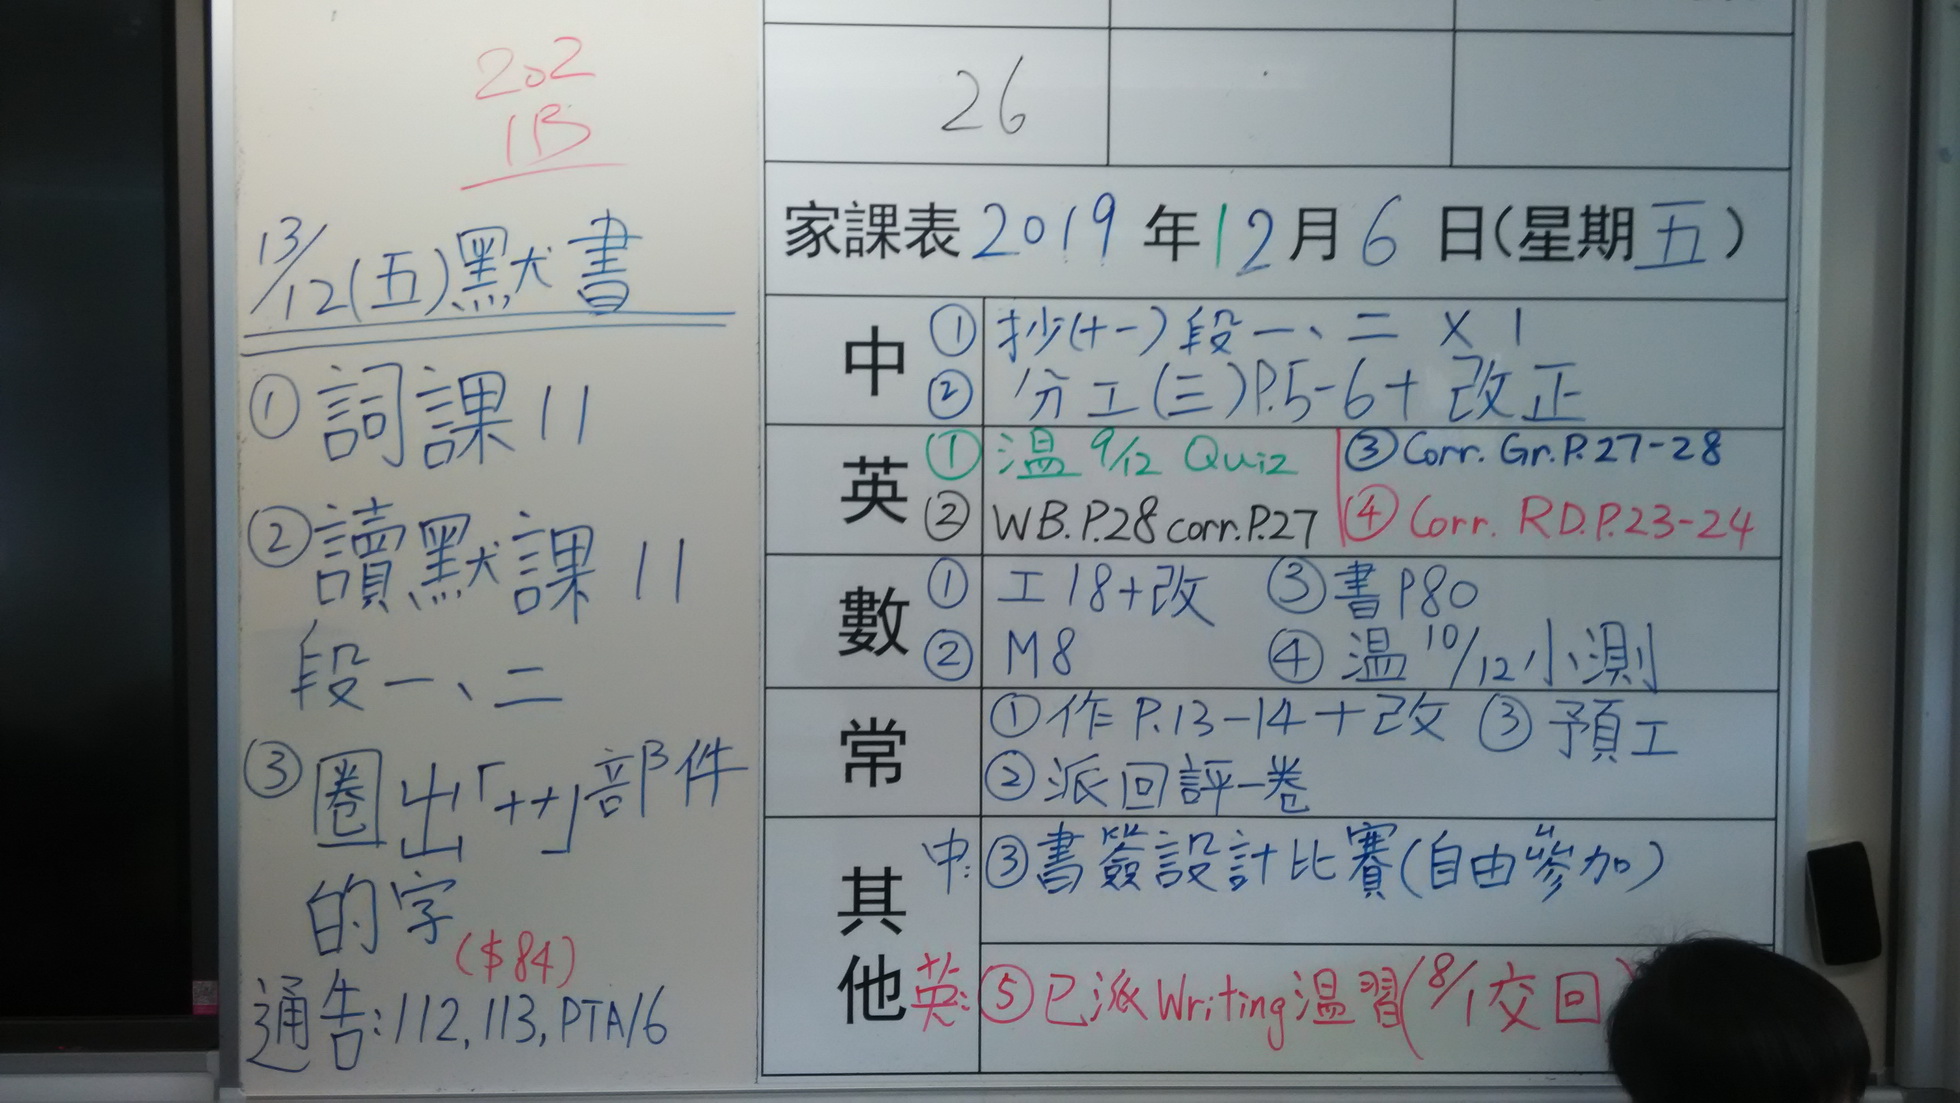 202
1B
13/12(五)默書
①詞課11
②讀默課11
段一、二
③圈出「艹」部件
的字
($84)
通告:112,113,PTA/6
26
家課表2019年12月6日(星期五)
中 ①抄(十一)段一、二 X 1
②分工(三)P.5-6+改正
英 ①温 9/12 Quiz ③Corr. Gr.P.27-28
②WB.P.28 corr.P.27 ④Corr. RD.P.23-24
數 ①工18+改 ③書P80
②M8 ④温 10/12小測
常 ①作P.13-14+改 ③預工
②派回評一卷
其他 中:③書簽設計比賽(自由參加)
英:⑤已派Writing温習(8/1交回